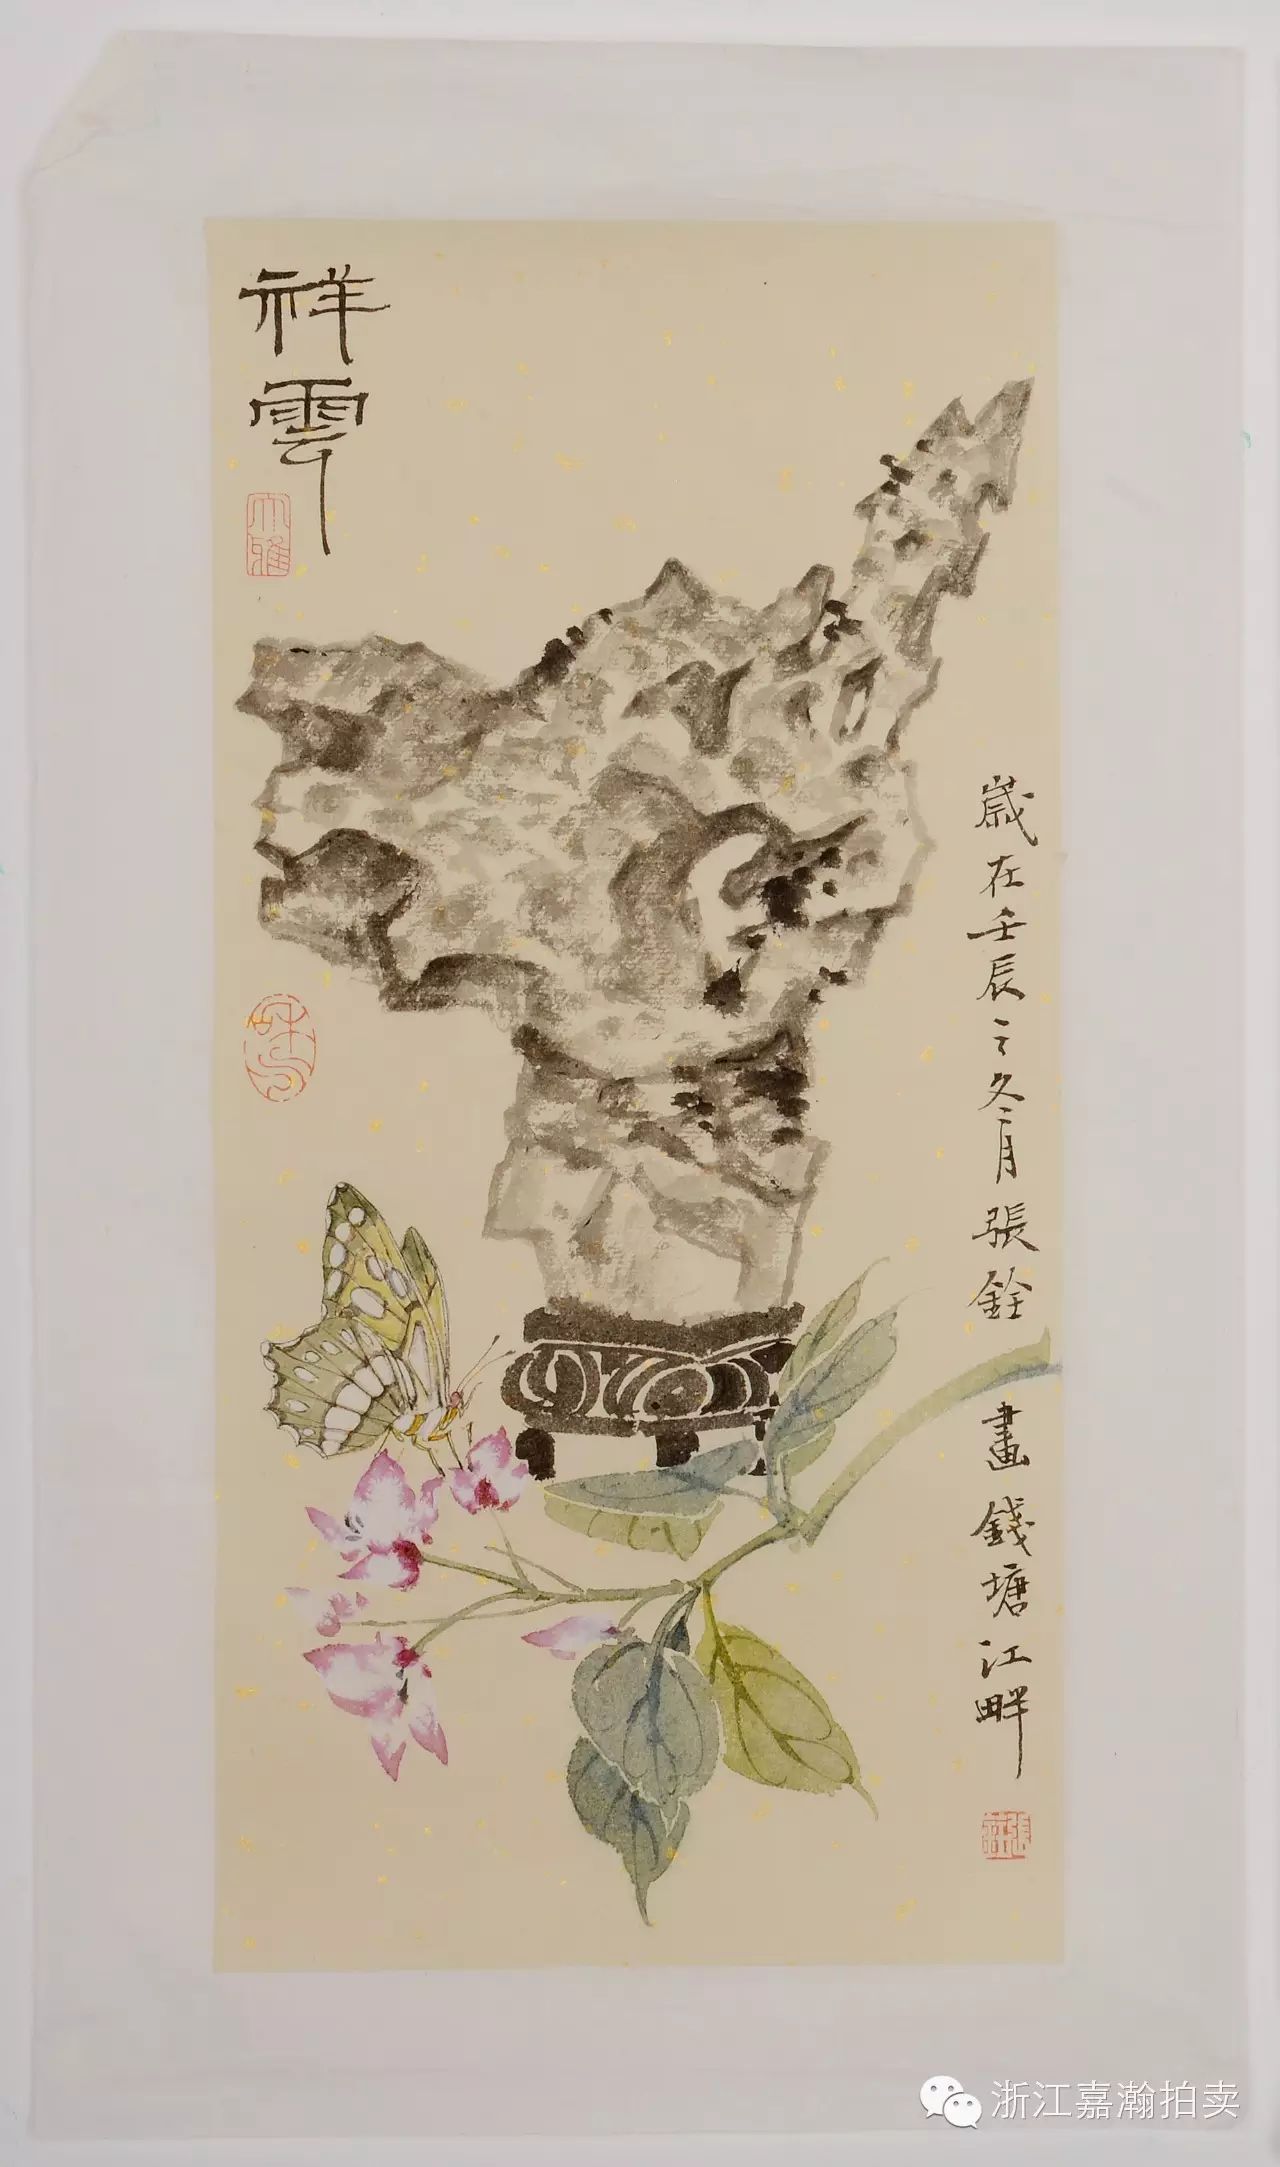 祥雲
大雅
歲在壬辰之冬月張銓 畫錢塘江畔
浙江嘉瀚拍卖